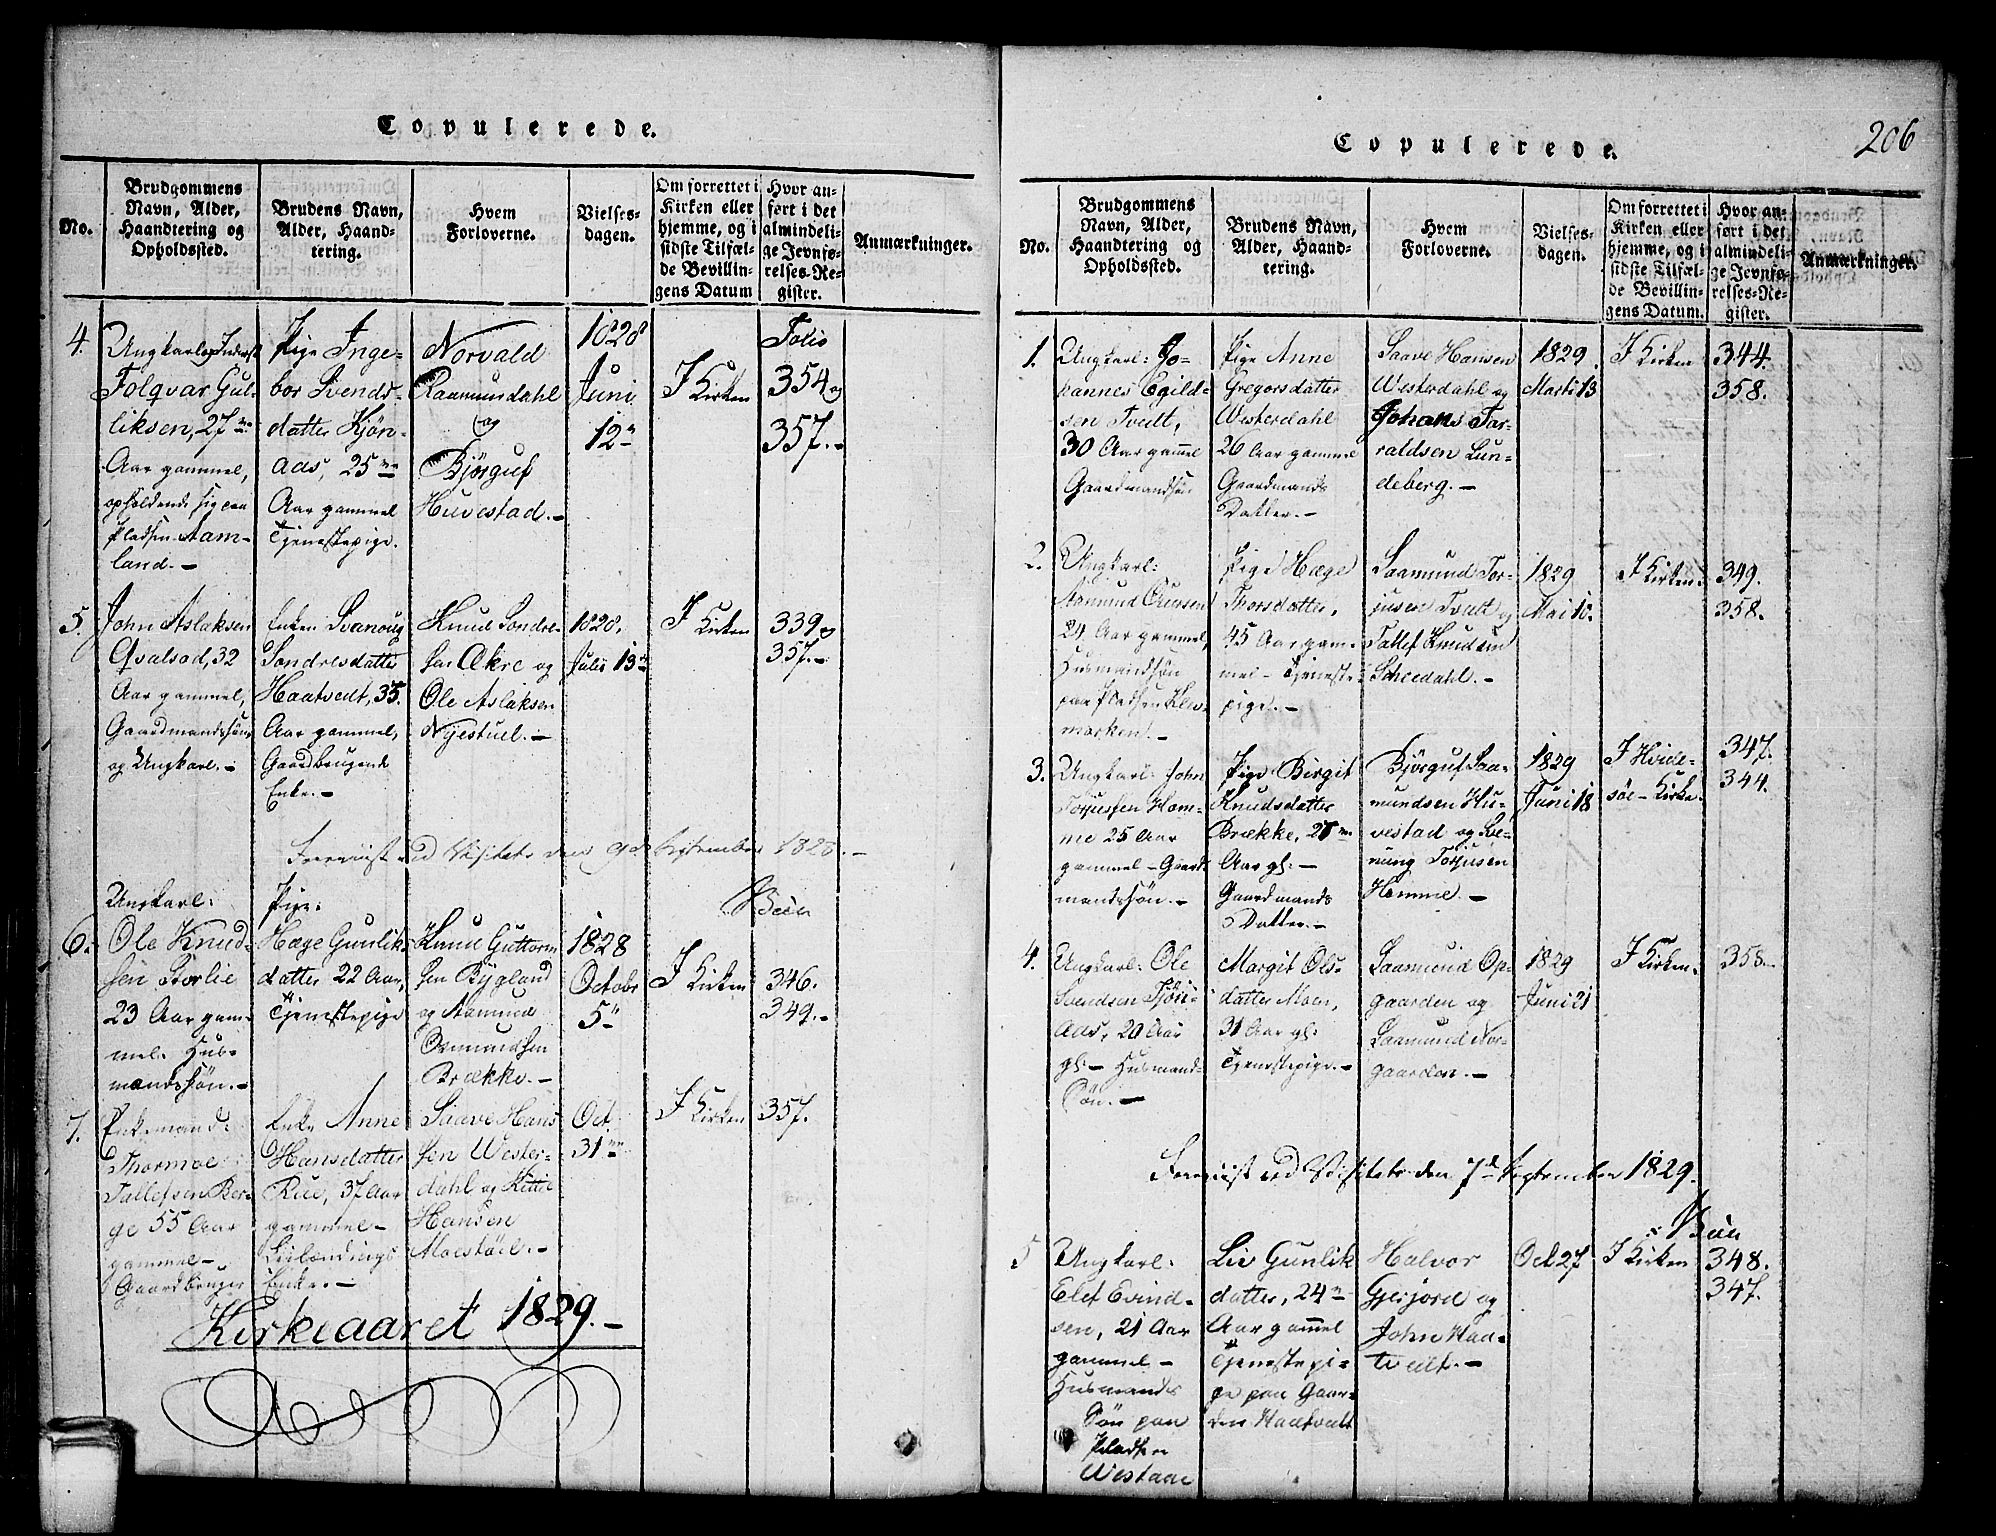 Copulerede.
No.
Brudgommens
Navn, Alder,
Haandtering og
Opholdssted.
Brudens Navn,
Alder, Haand-
tering.
Hvem
Forloverne.
Vielses-
dagen.
Om forrettet i
Kirken eller
hjemme, og i
sidste Tilfæl-
de Bevillin-
gens Datum
Hvor an-
ført i det
almindeli-
ge Jevnfø-
relses-Re-
gister.
Anmærkninger.
4.
Ungkarl og
Folqvar Gul-
liksen, 27
Aar gammel,
opholdende sig paa
Pladsen Aam-
land.-
Pige Inge-
bor Svends-
datter Kjøn-
aas, 25
Aar gammel
Tjenestepige.
Norvald
Raamundahl
og
Bjørguf
Huvestad.-
1828
Juni
12
I Kirken
Folio
354 og
357.-
5.
John Aslaksen
Qvalsod, 32
Aar gammel,
Gaardmandssøn
og Ungkarl.-
Enken Svanoug
Sondresdatter
Haatvedt, 35.
Aar gammel,
Gaardbrugende
Enke.-
Knud Sondre-
sen Ækre og
Ole Aslaksen
Nyestuel.-
1828.
Julii 13
I Kirken
339 og
357.-
Foreviist ved Visitats den 9de September 1828.-
6.
Ungkarl:
Ole Knud-
sen Børlie
23 Aar gam-
mel. Hus-
mandssøn.-
Pige:
Hæge Gunlik-
datter 22 Aar,
Tjenestepige
Knud Guttorm
sen Bygland
og Aamund
Osmundsen
Brække.-
1828
Octobr
5
I Kirken
346.
349.-
7.
Enkemand:
Thormoe
Tallefsen Ber-
ge 55 Aar
gammel-
Gaardbruger
Enke Anne
Hansdatter
Rue, 37 Aar
gammel-
Enke.-
Saave Hans
sen Wester-
dahl og Kittil
Hansen
Moestøel.-
Oct
31
I Kirken
357.
Kirkeaaret 1829.-
Copulerede.
206
No.
Brudgommens
Navn, Alder,
Haandtering og
Opholdssted.
Brudens Navn,
Alder, Haand-
tering.
Hvem
Forloverne.
Vielses-
dagen.
Om forrettet i
Kirken eller
hjemme, og i
sidste Tilfæl-
de Bevillin-
gens Datum.
Hvor an-
ført i det
almindeli-
ge Jevnfø-
relses-Re-
gister.
Anmærkninger.
1.
Ungkarl: Jo-
hannes Egild-
sen Tvedt,
30 Aar gammel
Gaardmandssøn
Pige Anne
Gregorsdatter
Westerdahl
26 Aar gammel
Gaardmands
Datter.-
Saave Hansen
Westerdahl og
Johans Tar-
raldsen Lun-
deberg.-
1829.
Marti 13
I Kirken
344.
358.
2.
Ungkarl:
Aamund
24 Aar gammel,
Husmandssøn
paa Pladsen
marken.-
Pige Hæge
Thorsdatter,
45 Aar gam-
mel- Tjeneste-
pige.-
Saamund Tor-
jusen Tvedt og
Tallef Knudsen
Scheedahl.-
1829
Mai 10.
I Kirken.
349.
358.
3.
Ungkarl: John
Torjussen Hom-
me 25 Aar
gammel- Gaard-
mandssøn.-
Pige Birgit
Knudsdatter
Brække, 27
Aar gl:-
Gaardmands
Datter.-
Bjørguf Saa-
mundsen Hu-
vestad og Sve-
nung Torjusen
Homme.-
1829
Juni 18
I Hvide-
søe- Kirke.
347.
344.
4.
Ungkarl: Ole
Svendsen Tjøn-
aas, 20 Aar
gl- Husmand-
Søn.-
Margit Ols-
datter Moen,
31 Aar gl:
Tjenestepige.-
Saamund Op-
gaarden og
Saamund Nor-
gaarden.-
1829
Juni 21
I Kirken.
358.-
Foreviist ved Visitats den 7d September 1829.
5
Ungkarl:
Elef Evind-
sen, 21 Aar
gammel-
Husmands
Søn paa
Pladsen
Westaae
Liv Gunlik
datter, 24
Aar gammel
Tjenestepi-
ge paa Gaar-
den Haatvedt
Halvor
Gjerjord og
John Haa-
tvedt.-
Oct 27
I Kirken
348.
347.